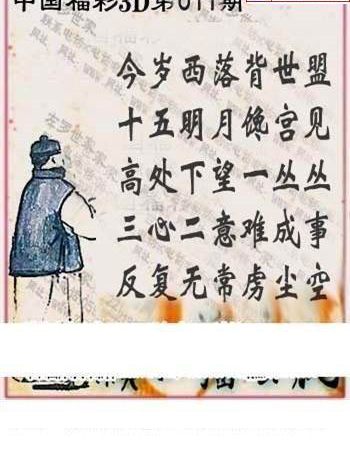 中国福彩3D第011期
今岁西落背世盟
十五明月馋宫见
高处下望一丛丛
三心二意难成事
反复无常虏尘空